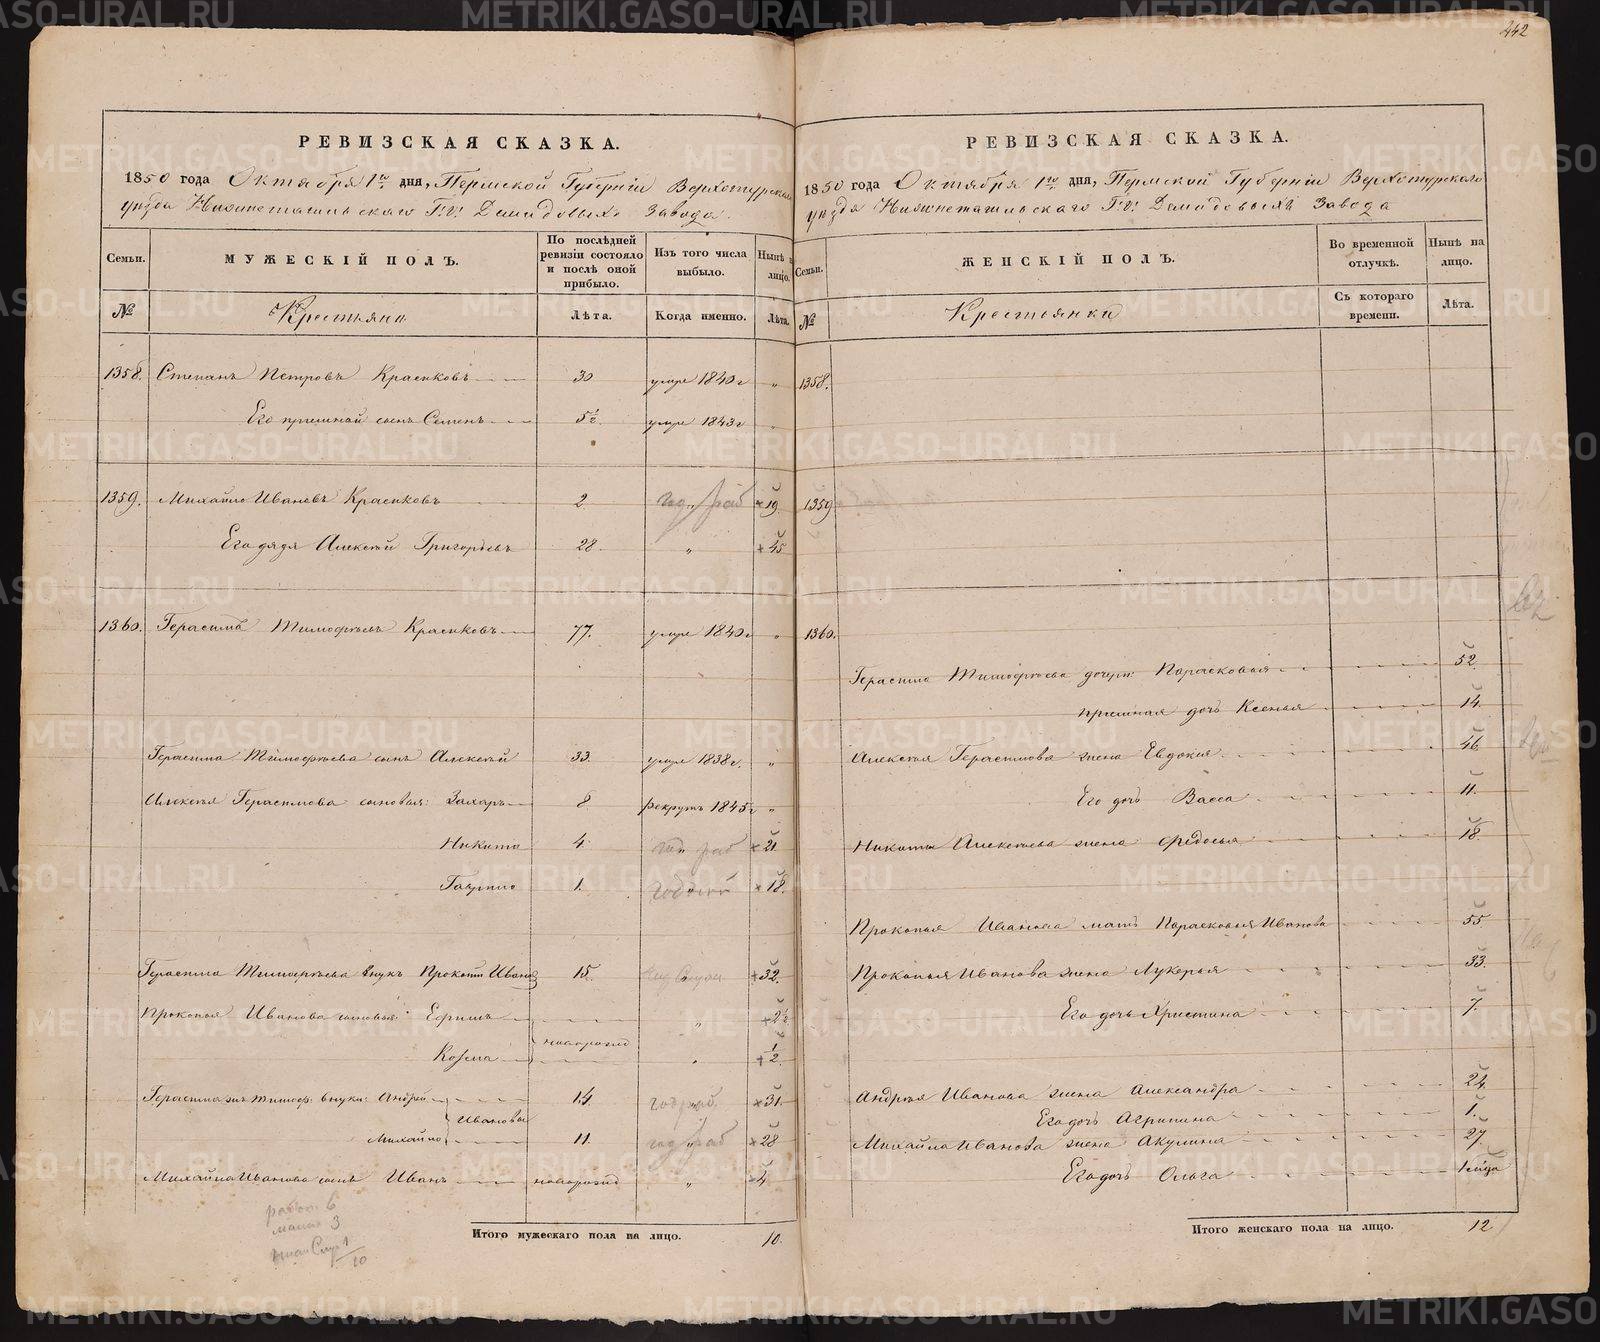 242
РЕВИЗСКАЯ СКАЗКА.
1850 года Октября 1го дня, Пермской Губерніи Верхотурскаго
уѣзда Нижнетагильскаго Г.г. Демидовыхъ Завода.
Семьи.
МУЖЕСКІЙ ПОЛЪ.
По послѣдней ревизіи состояло и послѣ оной прибыло.
Изъ того числа выбыло.
Нынѣ на лицо.
№
Крестьяни
Лѣта.
Когда именно.
Лѣта.
1358. Степанъ Петровъ Красиковъ 30 умре 1840 г „
Его приемной сынъ Семенъ 5½ умре 1843 г „
1359. Михайло Ивановъ Красиковъ 2 год раб 19.
Его дядя Алексѣй Григорьевъ 28. „ 45
1360. Герасимъ Тимофѣевъ Красиковъ 77. умре 1840 г „
Герасима Тимофѣева сынъ Алексѣй 33. умре 1838 г. „
Алексѣя Герасимова сыновья: Захаръ 8 рекрутъ 1845 г „
Никита 4 год раб 21.
Гаврило 1. 18.
Герасима Тимофѣева внукъ Прокопій Ивановъ 15. 32.
Прокопья Иванова сыновья: Ефимъ „ 2½
новорожд
Козма „ ½
Герасима жъ Тимоф: внуки: Андрей 14. год раб. 31.
Ивановы
Михайло 11. год раб 28
Михайла Иванова сынъ Иванъ новорожд „ 4
работ. 6
мало 3
Служ 1
10
Итого мужескаго пола на лицо. 10.
РЕВИЗСКАЯ СКАЗКА.
1850 года Октября 1го дня, Пермской Губерніи Верхотурскаго
уѣзда Нижнетагильскаго Г.г. Демидовыхъ Завода
Семьи.
ЖЕНСКІЙ ПОЛЪ.
Во временной отлучкѣ.
Нынѣ на лицо.
№
Крестьянки
Съ котораго времени.
Лѣта.
1358.
1359
1360.
Герасима Тимофѣева дочери: Парасковья 52.
приемная дочь Ксенья 14.
Алексѣя Герасимова жена Евдокия 46.
Его дочь Васса 11.
Никиты Алексѣева жена Федосья 18.
Прокопья Иванова мать Парасковья Иванова 55
Прокопья Иванова жена Лукерья 33.
Его дочь Христина 7.
Андрея Иванова жена Александра 24.
Его дочь Агрипина 1.
Михайла Иванова жена Акулина 27.
Его дочь Ольга 1 мѣся
Итого женскаго пола на лицо. 12
METRIKI.GASO-URAL.RU